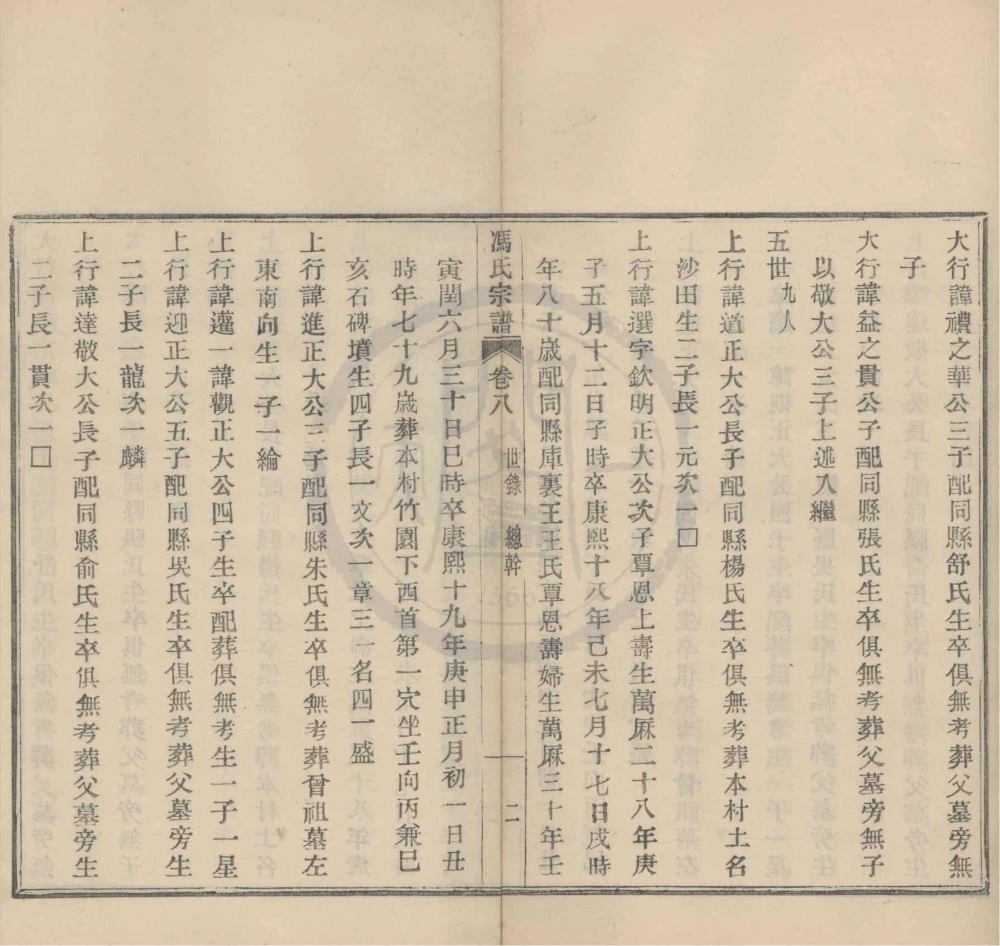 大行諱禮之華公三子配同縣舒氏生卒俱無考葬父墓旁無
子
大行諱益之貴公子配同縣張氏生卒俱無考葬父墓旁無子
以敬大公三子上述入繼
五世九人
上行諱道正大公長子配同縣楊氏生卒俱無考葬本村土名
沙田生二子長一元次一□
上行諱選字欽明正大公次子覃恩上壽生萬厤二十八年庚
子五月十二日子時卒康熙十八年己未七月十七日戌時
年八十歲配同縣庫裏王王氏覃恩壽婦生萬厤三十年壬
馮氏宗譜 卷八 世錄 總幹 二
寅閏六月三十日巳時卒康熙十九年庚申正月初一日丑
時年七十九歲葬本村竹園下西首第一穴坐壬向丙兼巳
亥石碑墳生四子長一文次一章三一名四一盛
上行諱進正大公三子配同縣朱氏生卒俱無考葬曾祖墓左
東南向生一子一綸
上行諱遷一諱觀正大公四子生卒配葬俱無考生一子一星
上行諱迎正大公五子配同縣吳氏生卒俱無考葬父墓旁生
二子長一龍次一麟
上行諱達敬大公長子配同縣俞氏生卒俱無考葬父墓旁生
二子長一貫次一□